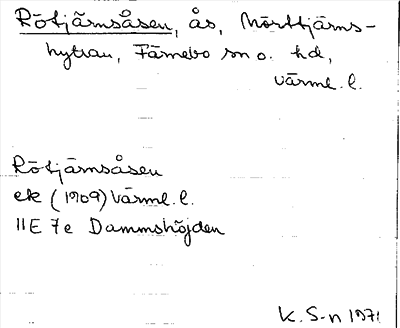 Rötjärnsåsen, ås, Mörttjärns-
hyttan, Färnebo sn o. hd,
Värml. l.
Rötjärnsåsen
ek (1909) Värml. l.
11E 7e Dammshöjden
K. S-n 1971